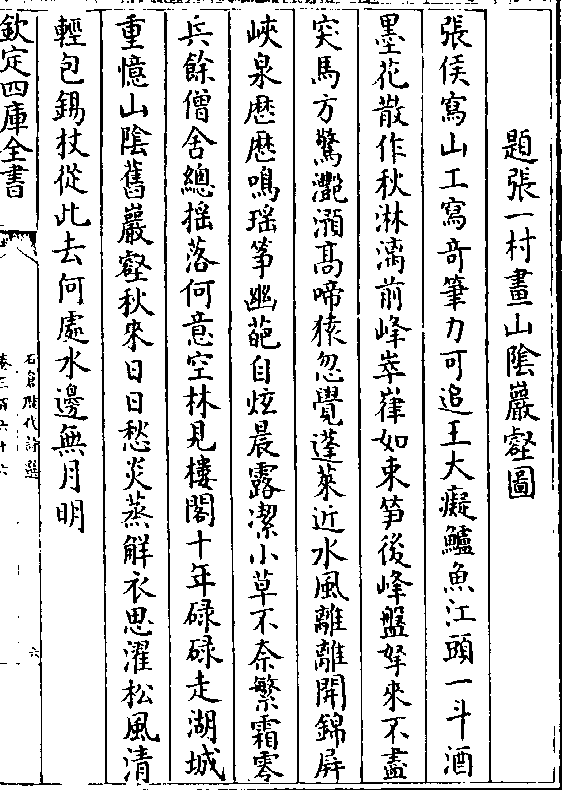 題張一村畫山陰巖壑圖
張侯寫山工寫奇筆力可追王大癡鱸魚江頭一斗酒
墨花散作秋淋漓前峰崒嵂如束笋後峰盤拏來不盡
突馬方驚灔澦髙啼猿忽覺蓬萊近水風離離開錦屏
峽泉歴歴鳴瑶筝幽葩自炫晨露潔小草不奈繁霜零
兵餘僧舍總揺落何意空林見樓閣十年碌碌走湖城
重憶山陰舊巖壑秋來日日愁炎蒸解衣思濯松風清
輕包錫杖從此去何處水邊無月明
欽定四庫全書
石倉歴代詩選
卷三百六十六
六